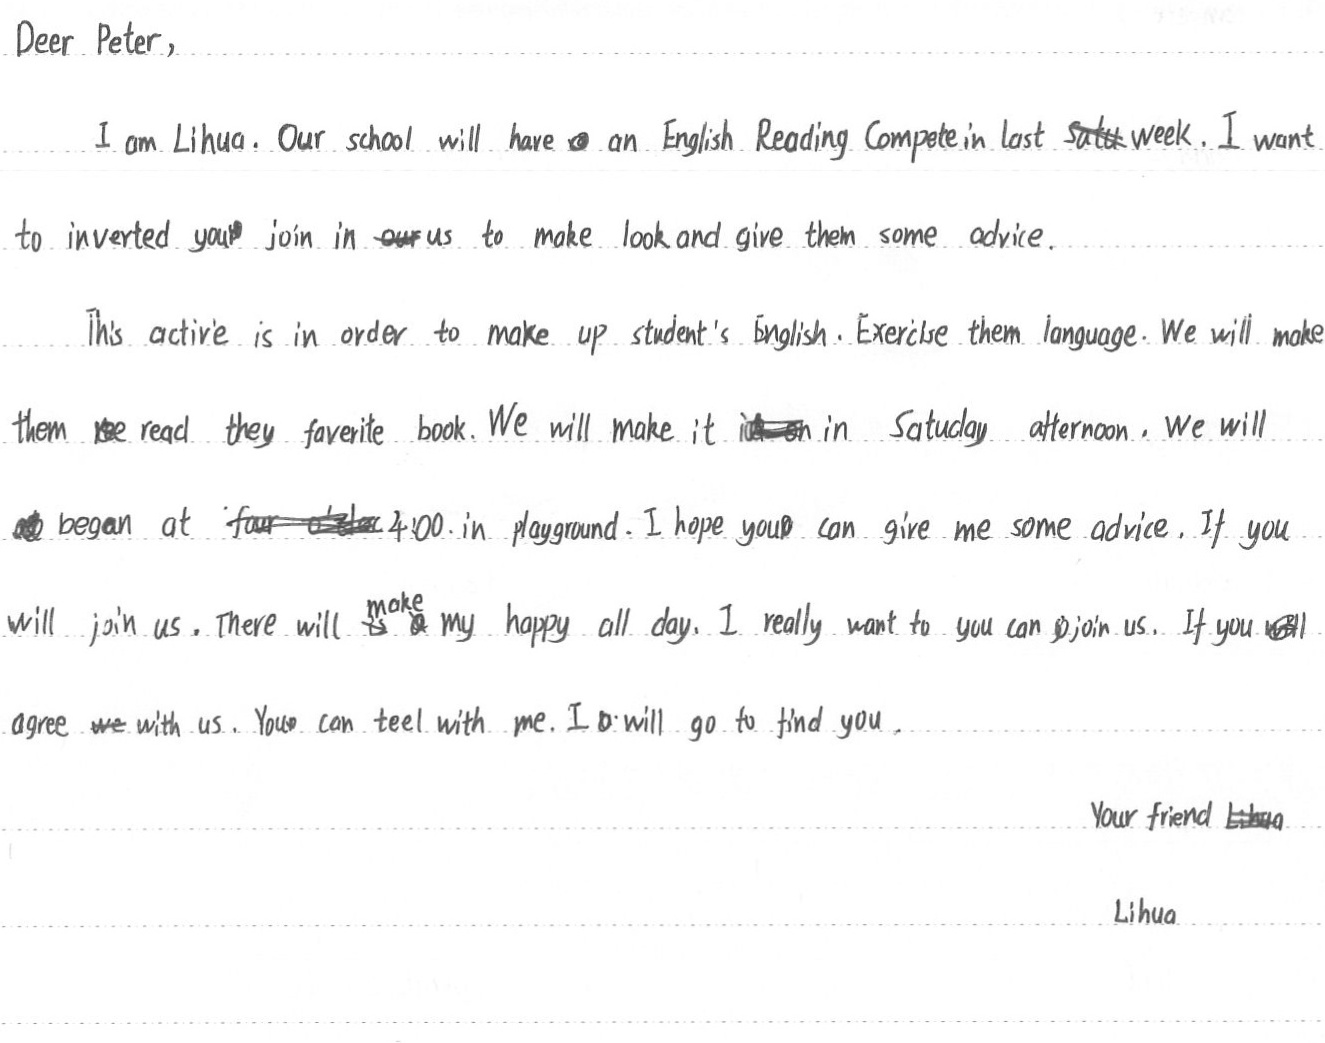 Deer Peter,
I am Lihua. Our school will have an English Reading Compete in last week. I want
to inverted you join in us to make look and give them some advice.
This active is in order to make up student's English. Exercise them language. We will make
them read they faverite book. We will make it in Satuday afternoon. We will
began at 4:00. in playground. I hope you can give me some advice. If you
will join us. There will make my happy all day. I really want to you can join us. If you
agree with us. You can teel with me. I will go to find you.
Your friend
Lihua